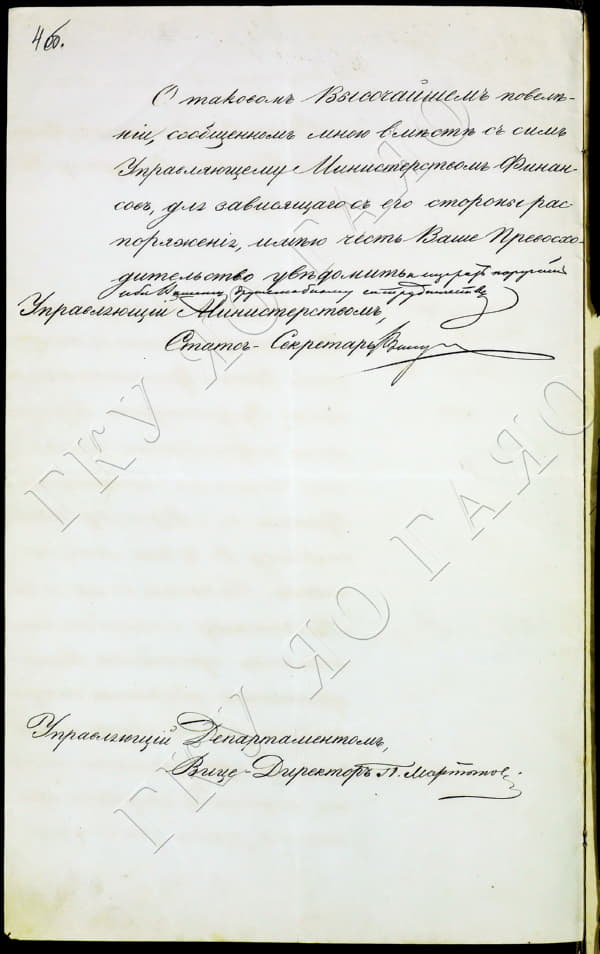 4об.
О таковомъ Высочайшемъ повелѣ-
ніи, сообщенномъ мною вмѣстѣ съ симъ
Управляющему Министерствомъ Финан-
совъ, для зависящаго съ его стороны рас-
поряженія, имѣю честь Ваше Превосхо-
дительство увѣдомить
Управляющій Министерствомъ,
Статсъ-Секретарь
Управляющій Департаментомъ,
Вице-Директоръ П. Мартыновъ
ГКУ ЯО ГАЯО
ГКУ ЯО ГАЯО